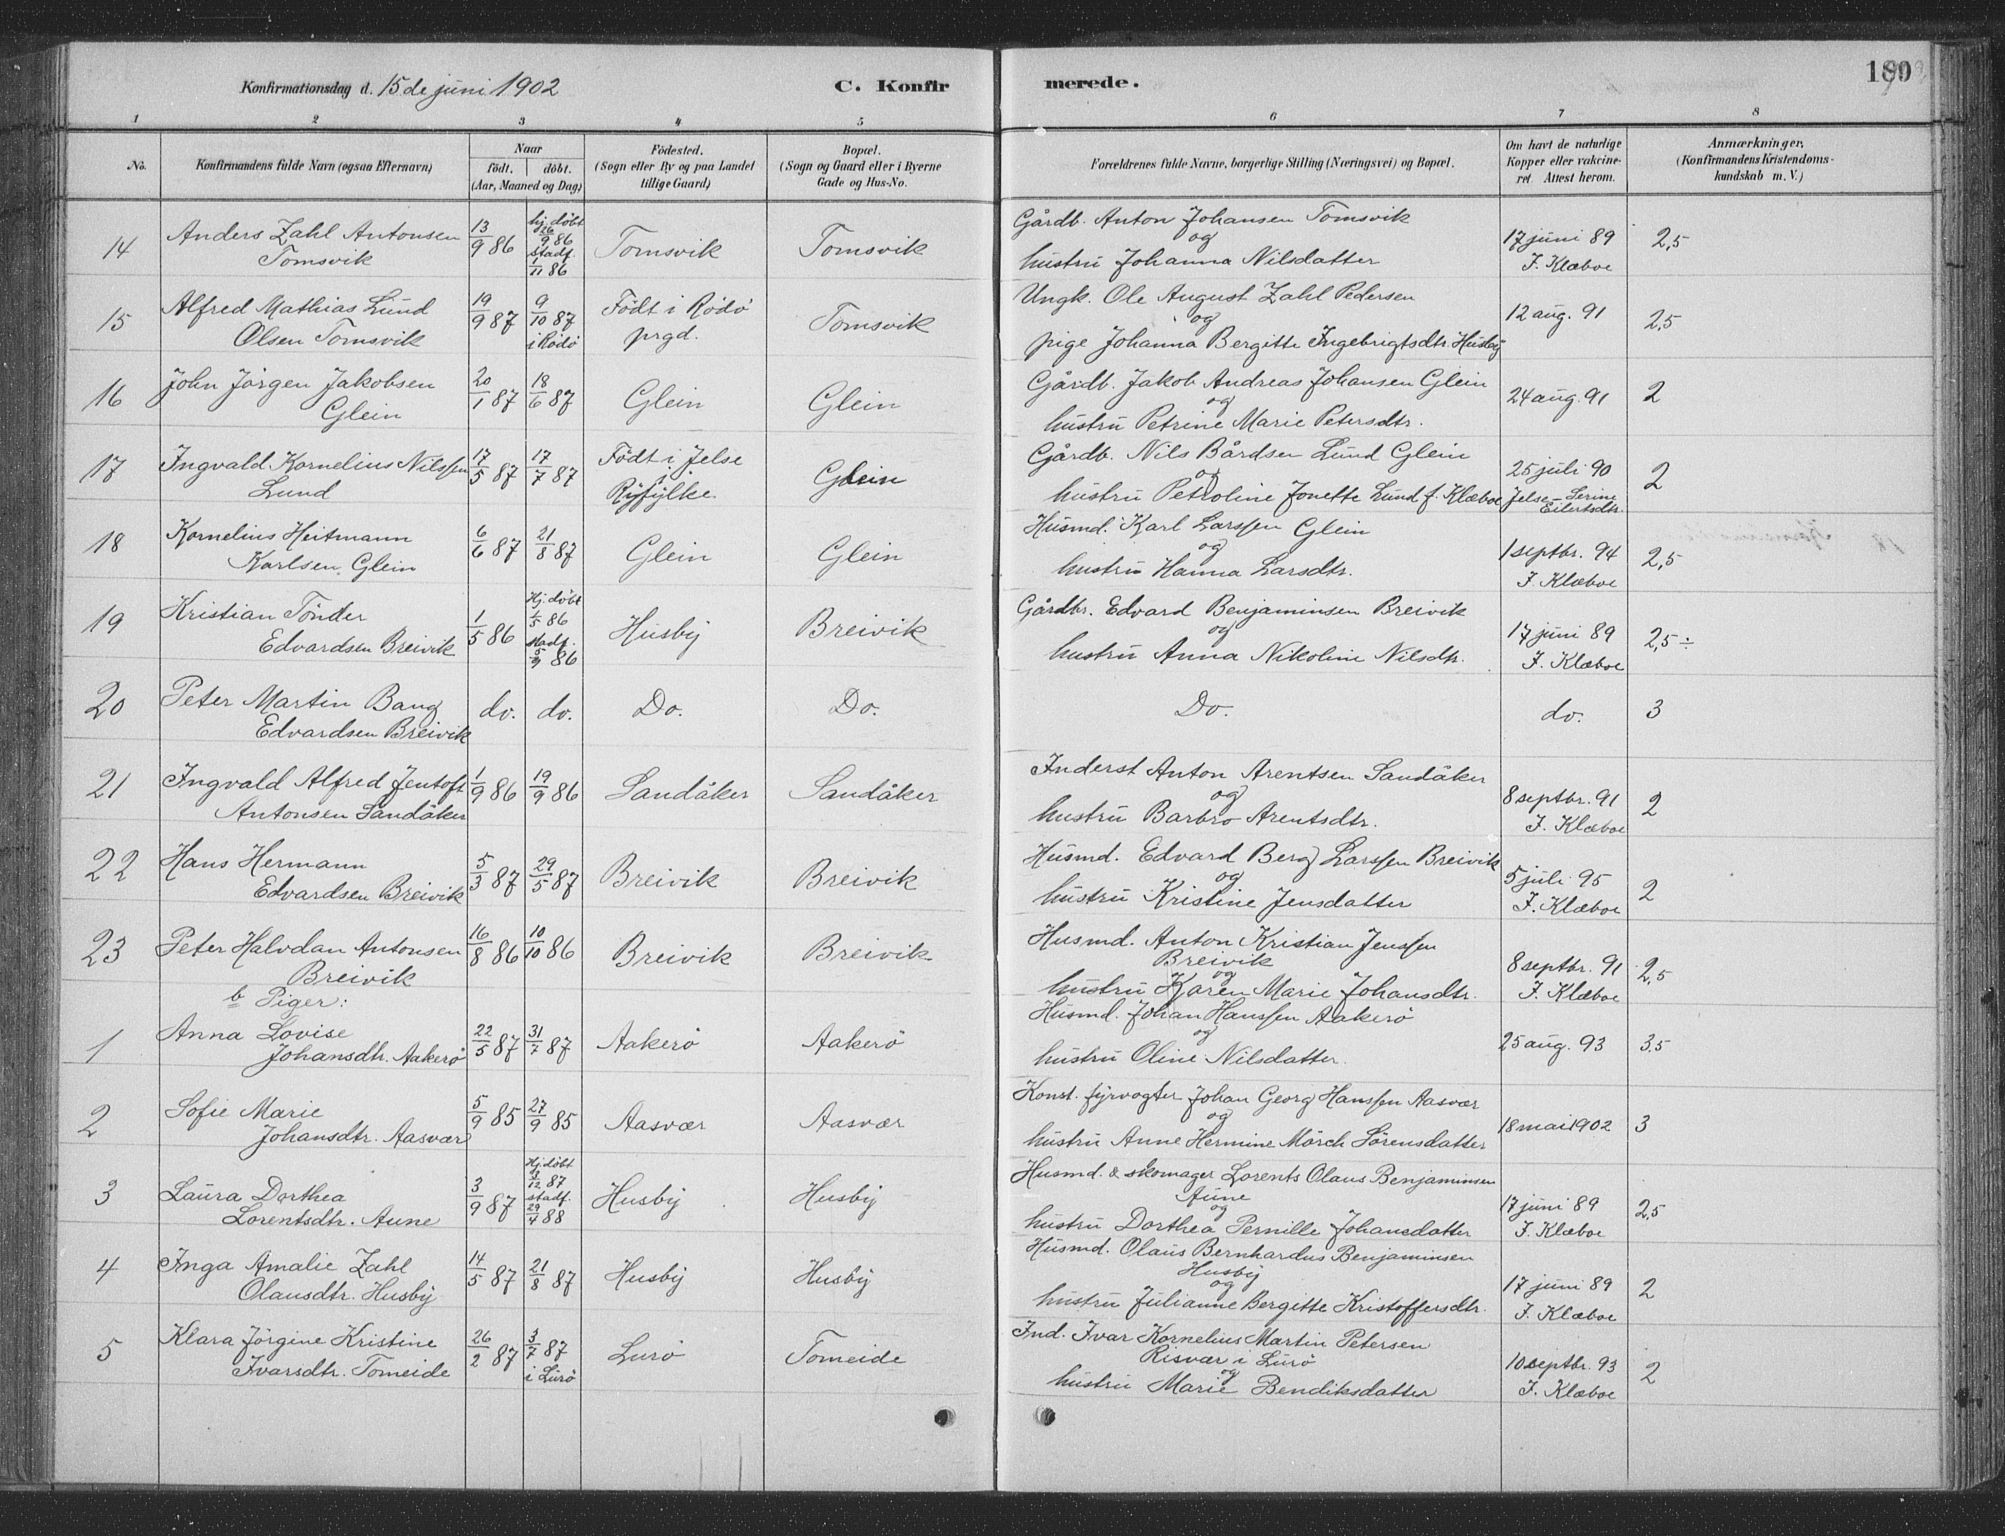 Konfirmationsdag d. 15de juni 1902 C. Konfirmerede. 180
1 2 3 4 5 6 7 8
No. Konfirmandens fulde Navn (ogsaa Efternavn) Naar født. døbt. (Aar, Maaned og Dag) Fødested. (Sogn eller By og paa Landet tillige Gaard) Bopæl. (Sogn og Gaard eller i Byerne Gade og Hus-No. Forældrenes fulde Navne, borgerlige Stilling (Næringsvei) og Bopæl. Om havt de naturlige Kopper eller vakcineret. Attest herom. Anmærkninger. (Konfirmandens Kristendomskundskab m. V.)
14 Anders Zahl Antonsen Tomsvik 13/9 86 hj. døbt 26/9 86 stadf. 1/11 86 Tomsvik Tomsvik Gårdb. Anton Johansen Tomsvik og hustru Johanna Nilsdatter 17 juni 89 J. Klæboe 2,5
15 Alfred Mathias Lund Olsen Tomsvik 19/9 87 9/10 87 i Rödö Født i Rödö prgd. Tomsvik Ungk. Ole August Zahl Pedersen og pige Johanna Bergitte Ingebrigtsdtr. Husby 12 aug. 91 2,5
16 John Jörgen Jakobsen Glein 20/1 87 18/6 87 Glein Glein Gårdb. Jakob Andreas Johansen Glein og hustru Petrine Marie Petersdtr. 24 aug. 91 2
17 Ingvald Kornelius Nilssen Lund 17/5 87 17/7 87 Født i Jelse i Ryfylke Glein Gårdb. Nils Bårdsen Lund Glein og hustru Petroline Jonette Lund f. Klæboe 25 juli 90 Jelse - Serine Eilertsdtr. 2
18 Kornelius Heitmann Karlsen Glein 6/6 87 21/8 87 Glein Glein Husmd. Karl Larssen Glein og hustru Hanna Larsdtr. 1 septbr. 94 J. Klæboe 2,5
19 Kristian Tönder Edvardsen Breivik 1/5 86 Hj. døbt 1/5 86 stadf. 5/9 86 Husby Breivik Gårdbr. Edvard Benjaminsen Breivik og hustru Anna Nikoline Nilsdtr. 17 juni 89 J. Klæboe 2,5 ÷
20 Peter Martin Bang Edvardsen Breivik do. do. Do. Do. Do. do. 3
21 Ingvald Alfred Jentoft Antonsen Sandåker 1/9 86 19/9 86 Sandåker Sandåker Inderst Anton Arentsen Sandåker og hustru Barbro Arentsdtr. 8 septbr. 91 J. Klæboe 2
22 Hans Hermann Edvardsen Breivik 5/3 87 29/5 87 Breivik Breivik Husmd. Edvard Berg Larssen Breivik og hustru Kristine Jensdatter 5 juli 95 J. Klæboe 2
23 Peter Halvdan Antonsen Breivik 16/8 86 10/10 86 Breivik Breivik Husmd. Anton Kristian Jenssen Breivik og hustru Karen Marie Johansdtr. 8 septbr. 91 J. Klæboe 2,5
b Piger:
1 Anna Lovise Johansdtr. Aakerö 22/5 87 31/7 87 Aakerö Aakerö Husmd. Johan Hanssen Aakerö og hustru Oline Nilsdatter. 25 aug. 93 3,5
2 Sofie Marie Johansdtr. Aasvær 5/9 85 27/9 85 Aasvær Aasvær Konst. fyrvogter Johan Georg Hanssen Aasvær og hustru Anne Hermine Mörch Sörensdatter 18 mai 1902 3
3 Laura Dorthea Lorentsdtr. Aune 3/9 87 Hj. døbt 12 87 stadf. 29/4 88 Husby Husby Husmd. & skomager Lorents Olaus Benjaminsen Aune og hustru Dorthea Pernille Johansdatter 17 juni 89 J. Klæboe 2,5
4 Inga Amalie Zahl Olausdtr. Husby 14/5 87 21/8 87 Husby Husby Husmd. Olaus Bernhardus Benjaminsen Husby og hustru Julianne Bergitte Kristoffersdtr. 17 juni 89 J. Klæboe 2
5 Klara Jörgine Kristine Ivarsdtr. Tomeide 26/2 87 3/7 87 i Lurö Lurö Tomeide Ind. Ivar Kornelius Martin Petersen Risvær i Lurö og hustru Marie Bendiksdatter 10 septbr. 93 J. Klæboe 2